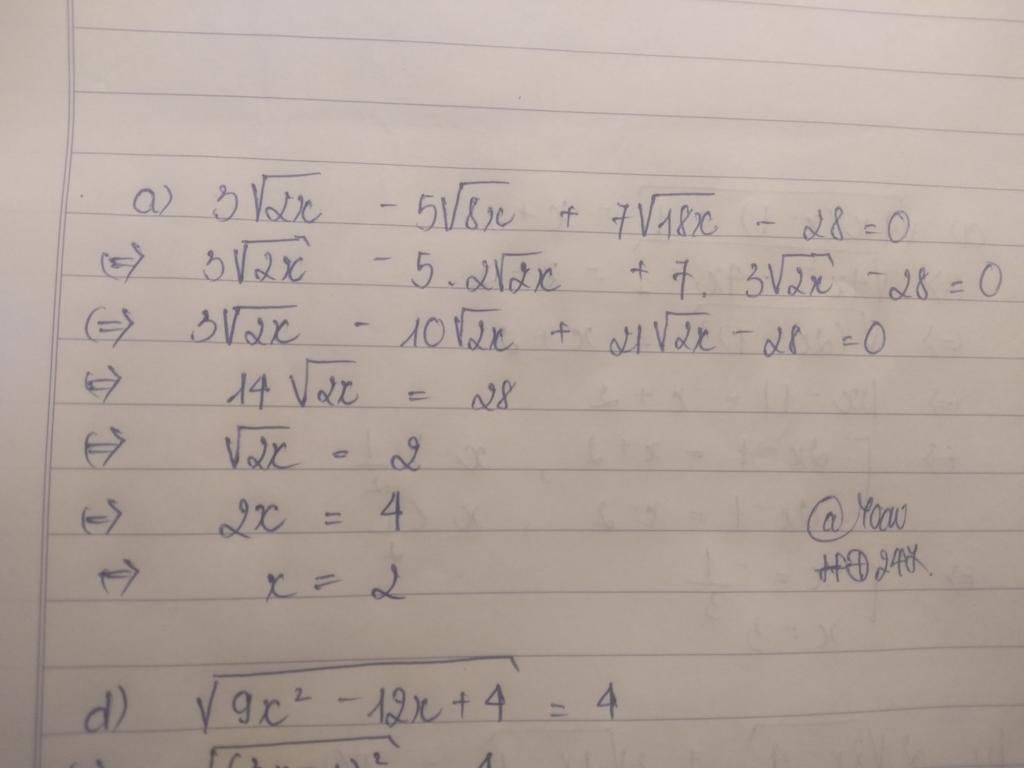 a) 3√2x - 5√8x + 7√18x - 28 = 0
(=) 3√2x - 5.2√2x + 7. 3√2x - 28 = 0
(=) 3√2x - 10√2x + 21√2x - 28 = 0
(=) 14√2x = 28
(=) √2x = 2
(=) 2x = 4
@
(=) x = 2
247.
d) √9x² - 12x + 4 = 4